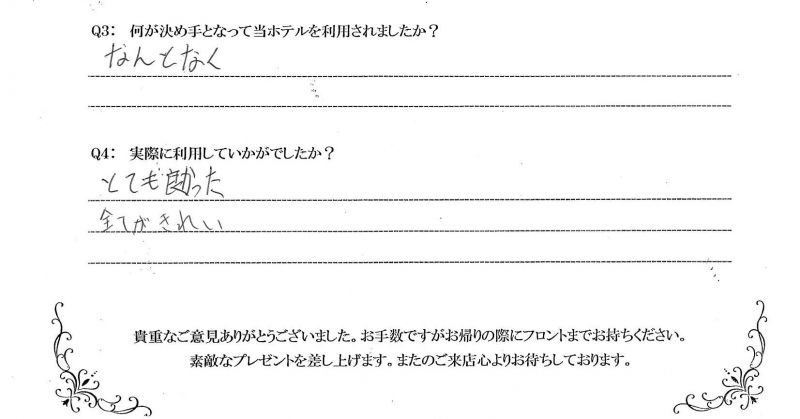 Q3： 何が決め手となって当ホテルを利用されましたか？
なんとなく
Q4： 実際に利用していかがでしたか？
とても良かった
全てがきれい
貴重なご意見ありがとうございました。お手数ですがお帰りの際にフロントまでお持ちください。
素敵なプレゼントを差し上げます。またのご来店心よりお待ちしております。